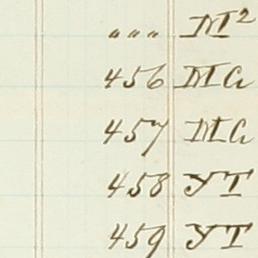 „ „ „ M²
456 MG
457 MG
458 YT
459 YT